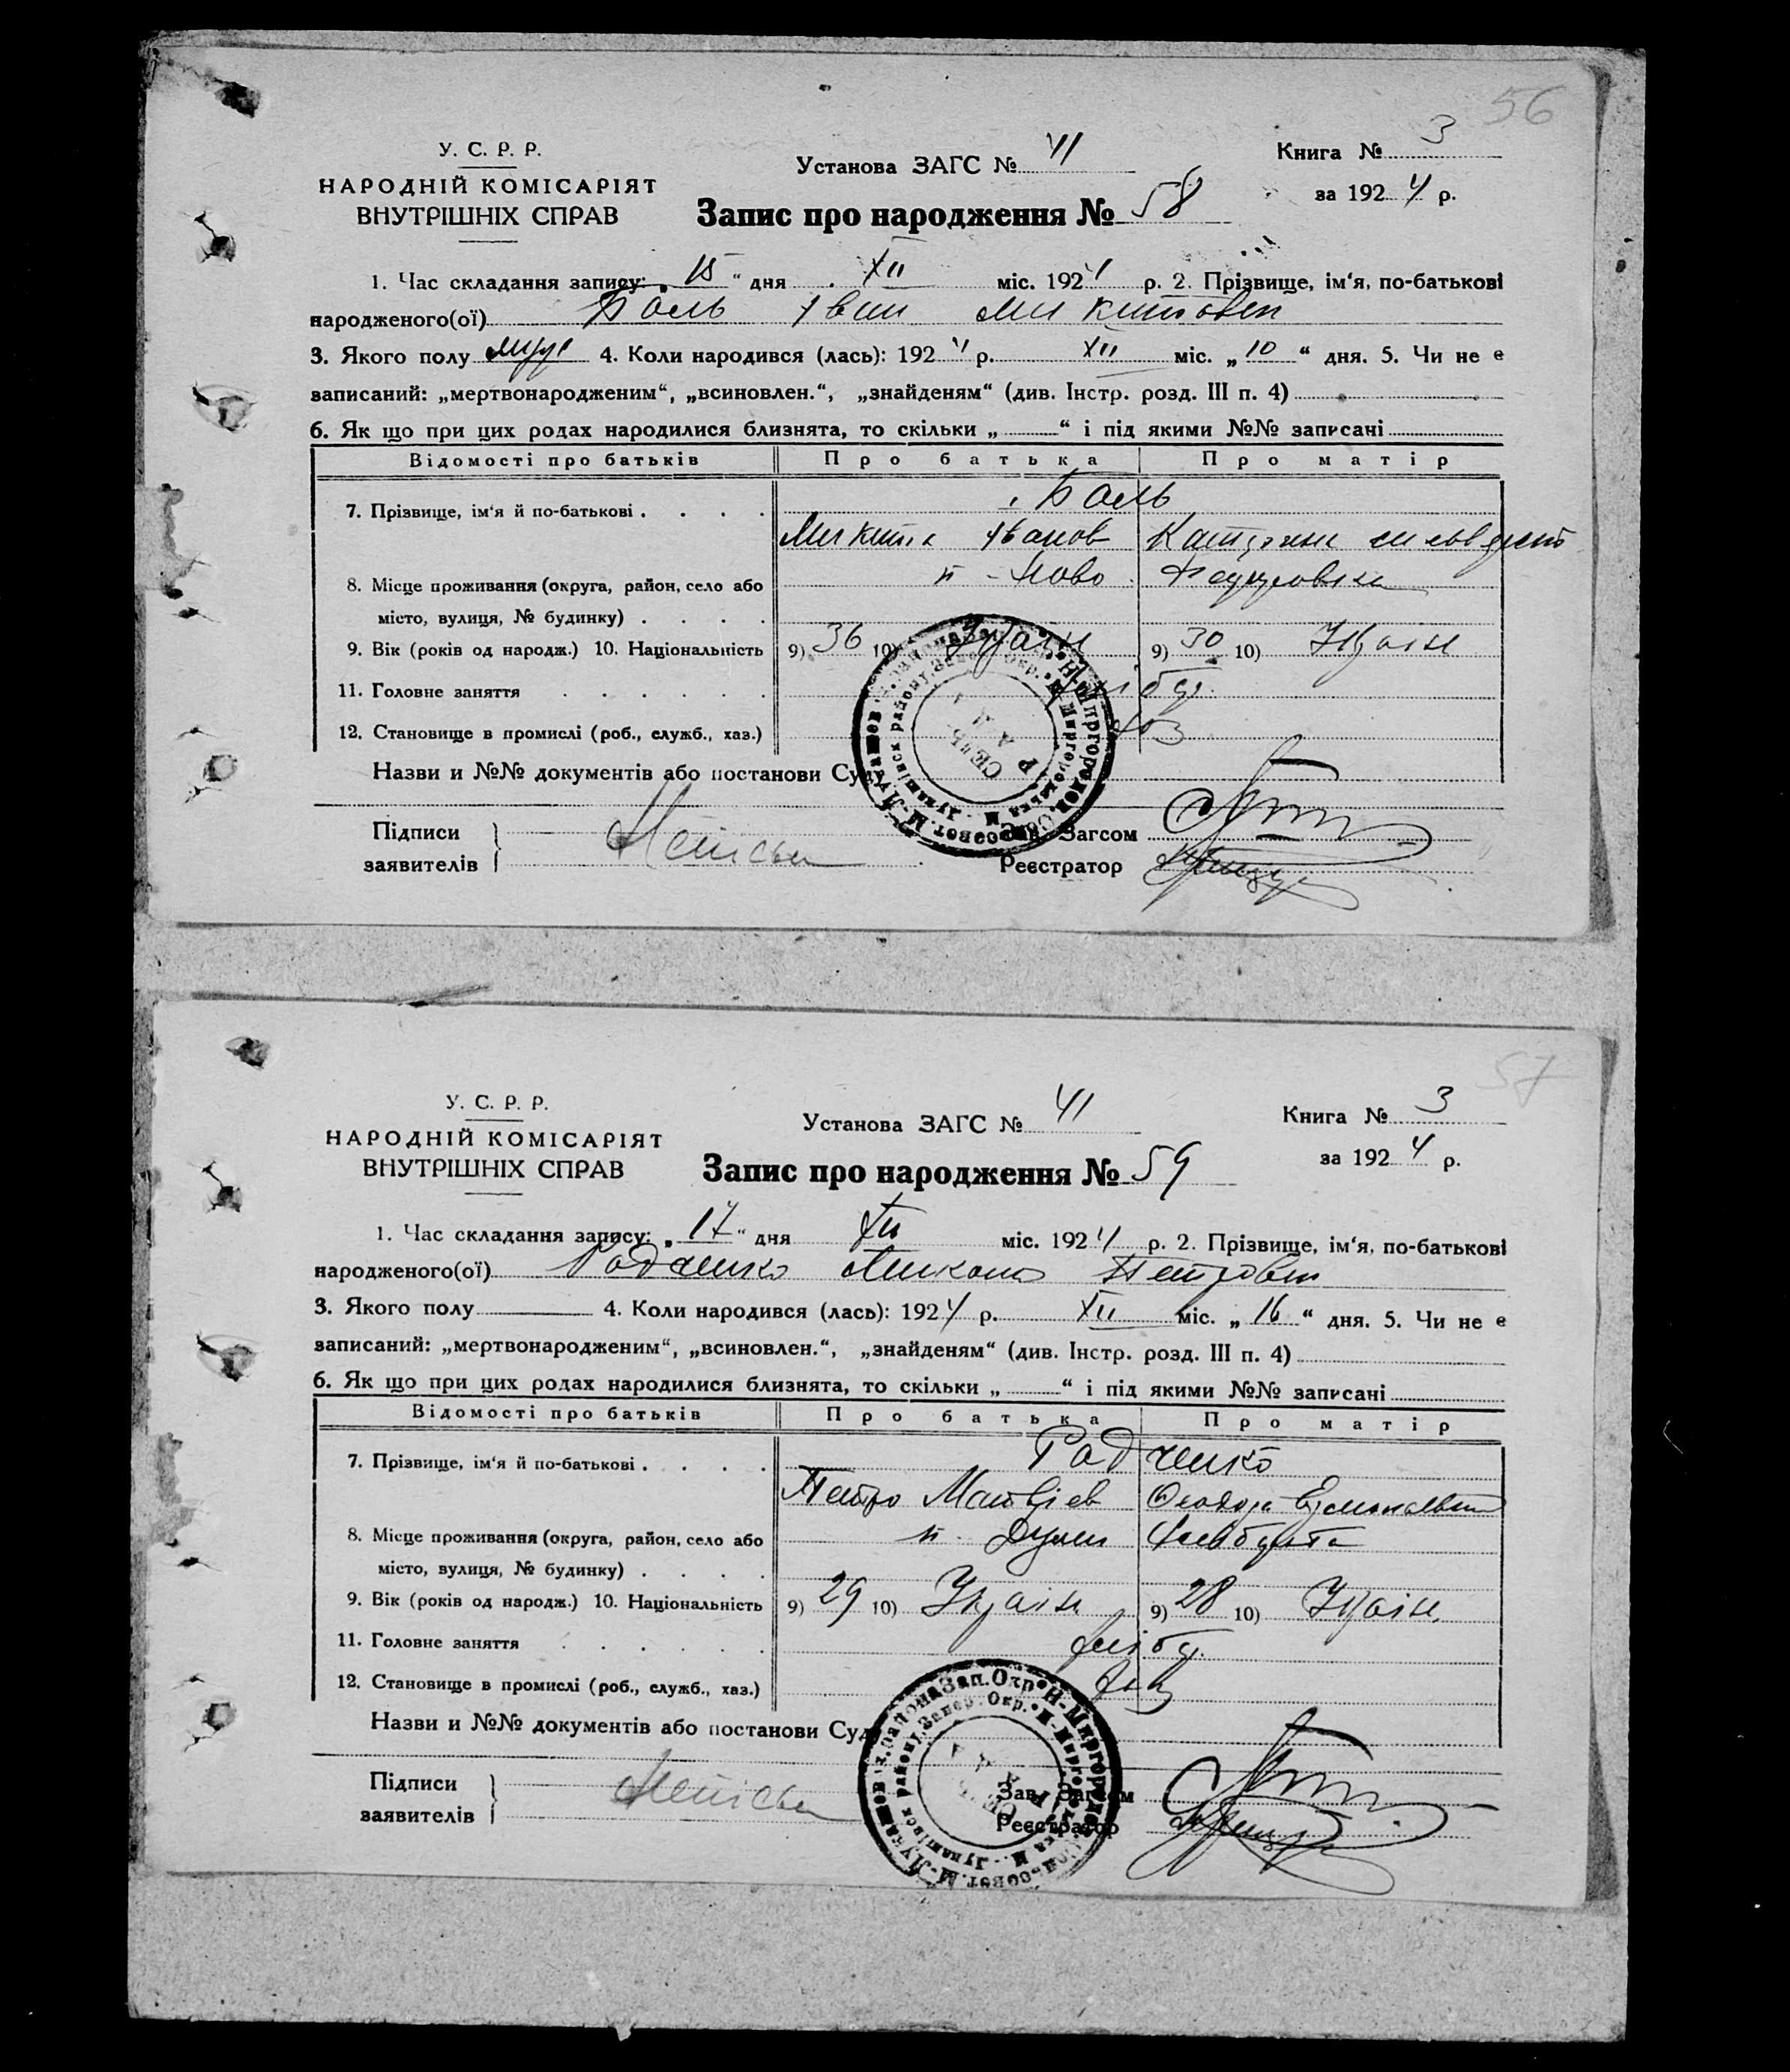 56
У. С. Р. Р.
НАРОДНІЙ КОМІСАРІЯТ
ВНУТРІШНІХ СПРАВ
Установа ЗАГС № 41
Книга № 3
за 1924 р.
Запис про народження № 58
1. Час складання запису: „ 15 “ дня XII міс. 1924 р. 2. Прізвище, ім‘я, по-батькові
народженого(ої) Баль Іван Микитович
3. Якого полу муж 4. Коли народився (лась): 1924 р. XII міс. „ 10 “ дня. 5. Чи не є
записаний: „мертвонародженим“, „всиновлен.“, „знайденям“ (див. Інстр. розд. III п. 4)
6. Як що при цих родах народилися близнята, то скільки „ “ і під якими №№ записані
Відомості про батьків Про батька Про матір
7. Прізвище, ім‘я й по-батькові . . . . Баль
Микита Іванов Катерина
8. Місце проживання (округа, район, село або х. Ново
місто, вулиця, № будинку) . . . .
9. Вік (років од народж.) 10. Національність 9) 36 10) Україн 9) 30 10) Україн
11. Головне заняття . . . . . .
12. Становище в промислі (роб., служб., хаз.)
Назви и №№ документів або постанови Суд
Підписи
заявителів
Зав. Загсом
Реєстратор
57
У. С. Р. Р.
НАРОДНІЙ КОМІСАРІЯТ
ВНУТРІШНІХ СПРАВ
Установа ЗАГС № 41
Книга № 3
за 1924 р.
Запис про народження № 59
1. Час складання запису: „ 17 “ дня XII міс. 1924 р. 2. Прізвище, ім‘я, по-батькові
народженого(ої) Радченко Микола Петрович
3. Якого полу 4. Коли народився (лась): 1924 р. XII міс. „ 16 “ дня. 5. Чи не є
записаний: „мертвонародженим“, „всиновлен.“, „знайденям“ (див. Інстр. розд. III п. 4)
6. Як що при цих родах народилися близнята, то скільки „ “ і під якими №№ записані
Відомості про батьків Про батька Про матір
7. Прізвище, ім‘я й по-батькові . . . . Радченко
Петро Матвієв
8. Місце проживання (округа, район, село або
місто, вулиця, № будинку) . . . .
9. Вік (років од народж.) 10. Національність 9) 29 10) Україн 9) 28 10) Україн
11. Головне заняття . . . . . .
12. Становище в промислі (роб., служб., хаз.)
Назви и №№ документів або постанови Суд
Підписи
заявителів
Зав. Загсом
Реєстратор